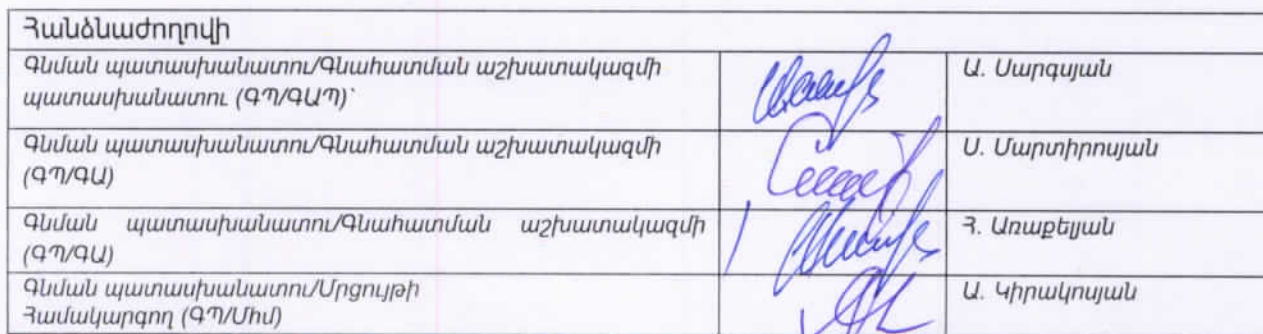 Հանձնաժողովի
Գնման պատասխանատու/Գնահատման աշխատակազմի
պատասխանատու (ԳՊ/ԳԱՊ)՝
Ա. Սարգսյան
Գնման պատասխանատու/Գնահատման աշխատակազմի
(ԳՊ/ԳԱ)
Ս. Մարտիրոսյան
Գնման պատասխանատու/Գնահատման աշխատակազմի
(ԳՊ/ԳԱ)
Հ. Առաքելյան
Գնման պատասխանատու/Մրցույթի
Համակարգող (ԳՊ/Մհմ)
Ա. Կիրակոսյան